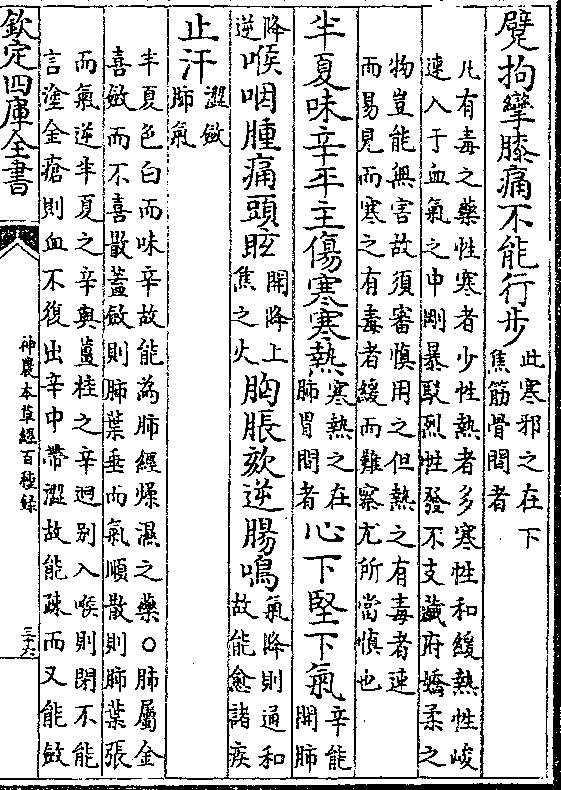 躄拘攣膝痛不能行步此寒邪之在下
焦筋骨間者
凡有毒之藥性寒者少性熱者多寒性和緩熱性峻
速入于血氣之中剛暴駁烈性發不支藏府嬌柔之
物豈能無害故須審慎用之但熱之有毒者速
而易見而寒之有毒者緩而難察尤所當慎也
半夏味辛平主傷寒寒熱寒熱之在
肺胃間者心下堅下氣辛能
開肺
降
逆喉咽腫痛頭眩開降上
焦之火胸脹欬逆腸鳴氣降則通和
故能愈諸疾
止汗澀斂
肺氣
半夏色白而味辛故能為肺經燥濕之藥○肺屬金
喜斂而不喜散蓋斂則肺葉垂而氣順散則肺葉張
而氣逆半夏之辛與薑桂之辛迥别入喉則閉不能
言塗金瘡則血不復出辛中帶澀故能疎而又能斂
欽定四庫全書
神農本草經百種録
三十六